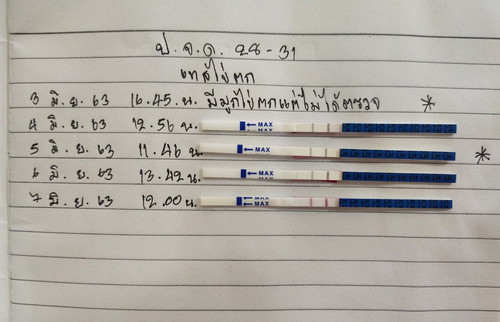 ป.จ.ด. 28-31
เทสไข่ตก
3 มิ.ย. 63 16.45 น. มีมูกไข่ตกแต่ไม่ได้ตรวจ *
4 มิ.ย. 63 12.56 น. ← MAX
5 มิ.ย. 63 11.46 น. ← MAX *
6 มิ.ย. 63 13.42 น. ← MAX
7 มิ.ย. 63 12.00 น. ← MAX